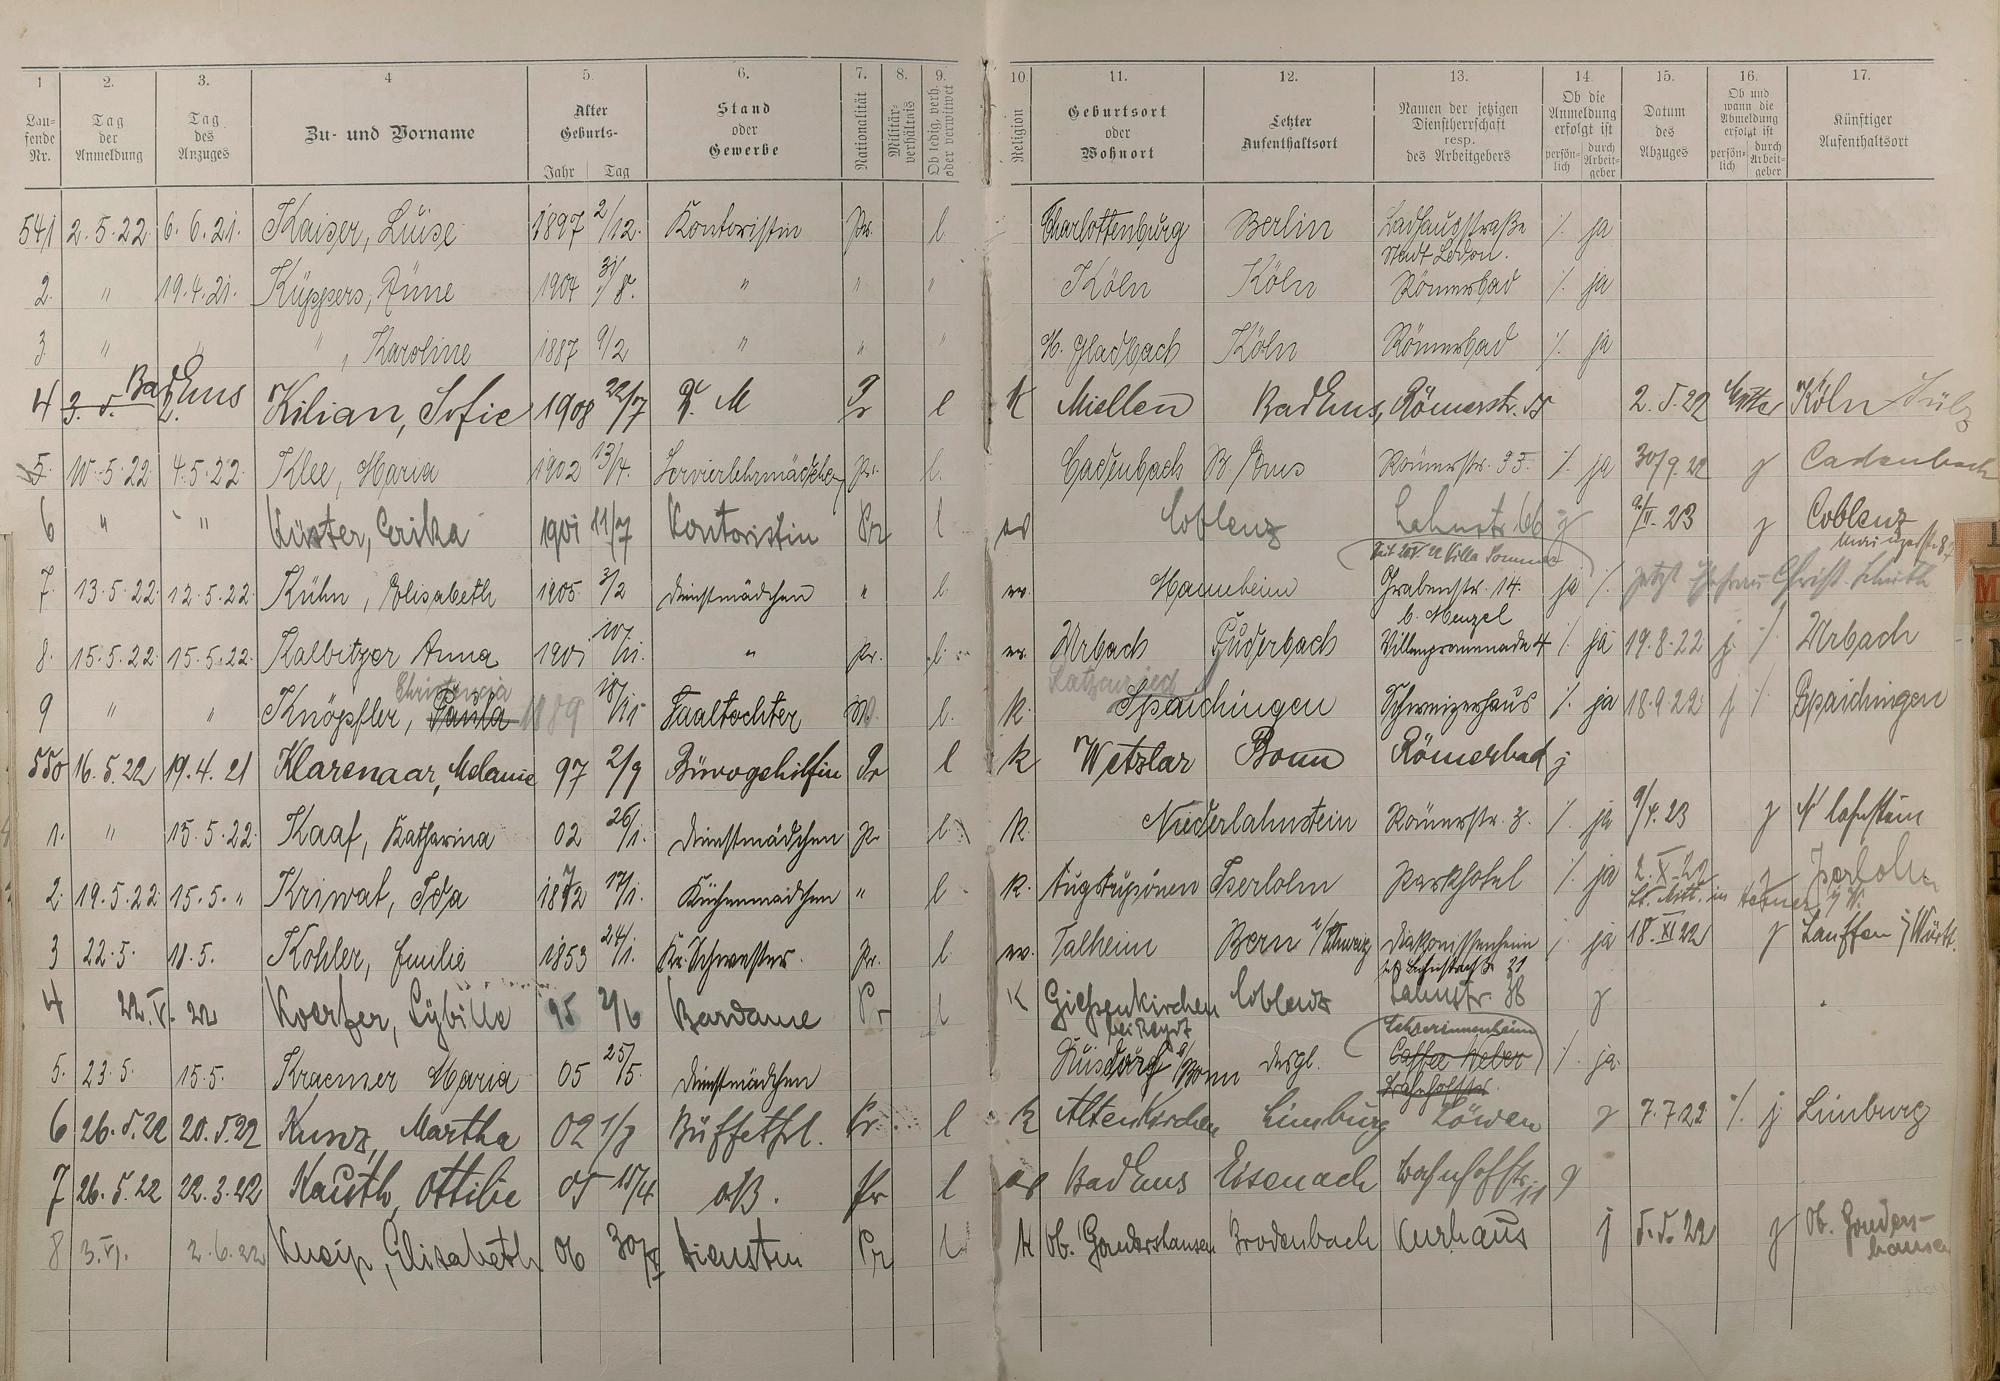 1 2. 3. 4 5. 6. 7. 8. 9. 10. 11. 12. 13. 14. 15. 16. 17.
Laufende Nr. Tag der Anmeldung Tag des Anzuges Zu- und Vorname Alter Geburts- Jahr Tag Stand oder Gewerbe Nationalität Militärverhältnis Ob ledig, verh. oder verwitwet Religion Geburtsort oder Wohnort Letzter Aufenthaltsort Namen der jetzigen Dienstherrschaft resp. des Arbeitgebers Ob die Anmeldung erfolgt ist persönlich durch Arbeitgeber Datum des Abzuges Ob und wann die Abmeldung erfolgt ist persönlich durch Arbeitgeber Künftiger Aufenthaltsort
541 2.5.22. 6.6.21. Kaiser, Luise 1897 2/12. Kontoristin Pr. l. Charlottenburg Berlin Stadt /. ja
2. " 19.4.21. Küppers, Änne 1904 31/8. " " " Köln Köln Römerbad /. ja
3 " " " , Karoline 1887 9/2 " " " M. Gladbach Köln Römerbad /. ja
4 3. 5. Bad Ems Kilian, Sofie 1908 22/7 D. M Pr l K Miellen Bad Ems, Römerstr. 55 2.5.22 Mutter Köln Sülz
5. 10.5.22 4.5.22. Klee, Maria 1902 13/4. Servierlehrmädchen Pr. l. Cadenbach B/Ems Römerstr. 35. /. ja 30/9 22 j Cadenbach
6 " " Küster, Erika 1901 11/7 Kontoristin Pr l ev Coblenz Lahnstr. 66 j 9/II. 23 j Coblenz
Villa Sommer
7. 13.5.22. 12.5.22. Kühn, Elisabeth 1905 3/2 Dienstmädchen " l. ev. Mannheim Grabenstr. 14. ja /. jetzt Ehefrau Christ. Schuth
b. Menzel
8. 15.5.22. 15.5.22. Kalbitzer Anna 1901 10/11. " Pr. l. ev. Urbach Puderbach Villenpromenade 4 /. ja 19.8.22 j. /. Urbach
Christencia
9 " " Knöpfler, Paula 1889 18/11 Saaltochter W. l. k. Spaichingen Schweizerhaus /. ja 18.9.22 j /. Spaichingen
550 16.5.22 19.4.21 Klarenaar, Melanie 97 2/9 Bürogehilfin Pr l k Wetzlar Bonn Römerbad j
1. " 15.5.22. Kaaf, Katharina 02 26/1. Dienstmädchen Pr. l. k. Niederlahnstein Römerstr. 3. /. ja 9/4.23 j N'lahnstein
2. 19.5.22. 15.5. " Kriwat, Ida 1872 17/1. Küchenmädchen " l k. Augstupönen Iserlohn Parkhotel /. ja 2.X.22 j Iserlohn
3 22.5. 18.5. Kohler, Emilie 1853 24/1. Kr. Schwester. Pr. l. ev. Talheim Bern i/Schweiz Diakonissenheim /. ja 18.XI 22 j Lauffen i/Württ.
4 22.V. 22 Koerfer, Sybille 95 2/6 Bardame Pr l K Giesenkirchen bei Reydt Coblenz Lahnstr. 38 j
Lehrerinnenheim
5. 23.5. 15.5. Kraemer Maria 05 25/5. Dienstmädchen Duisdorf b/Bonn desgl. Caffee Weber /. ja.
Bahnhofstr.
6 26.5.22 20.5.22 Kunz, Martha 02 1/8 Büffetfrl. Pr. l k Altenkirchen Limburg Löwen j 7.7.22 /. j Limburg
7 26.5.22 22.3.22 Kauth, Ottilie 05 15/4 oB. Pr l ev Bad Ems Eisenach Bahnhofstr. 11 j
8 3.VI. 2.6.22 Kneip, Elisabeth 06 30/XI Dienstm Pr l k Ob. Gondershausen Brodenbach Kurhaus j 5.5.22 j Ob. Gondershausen